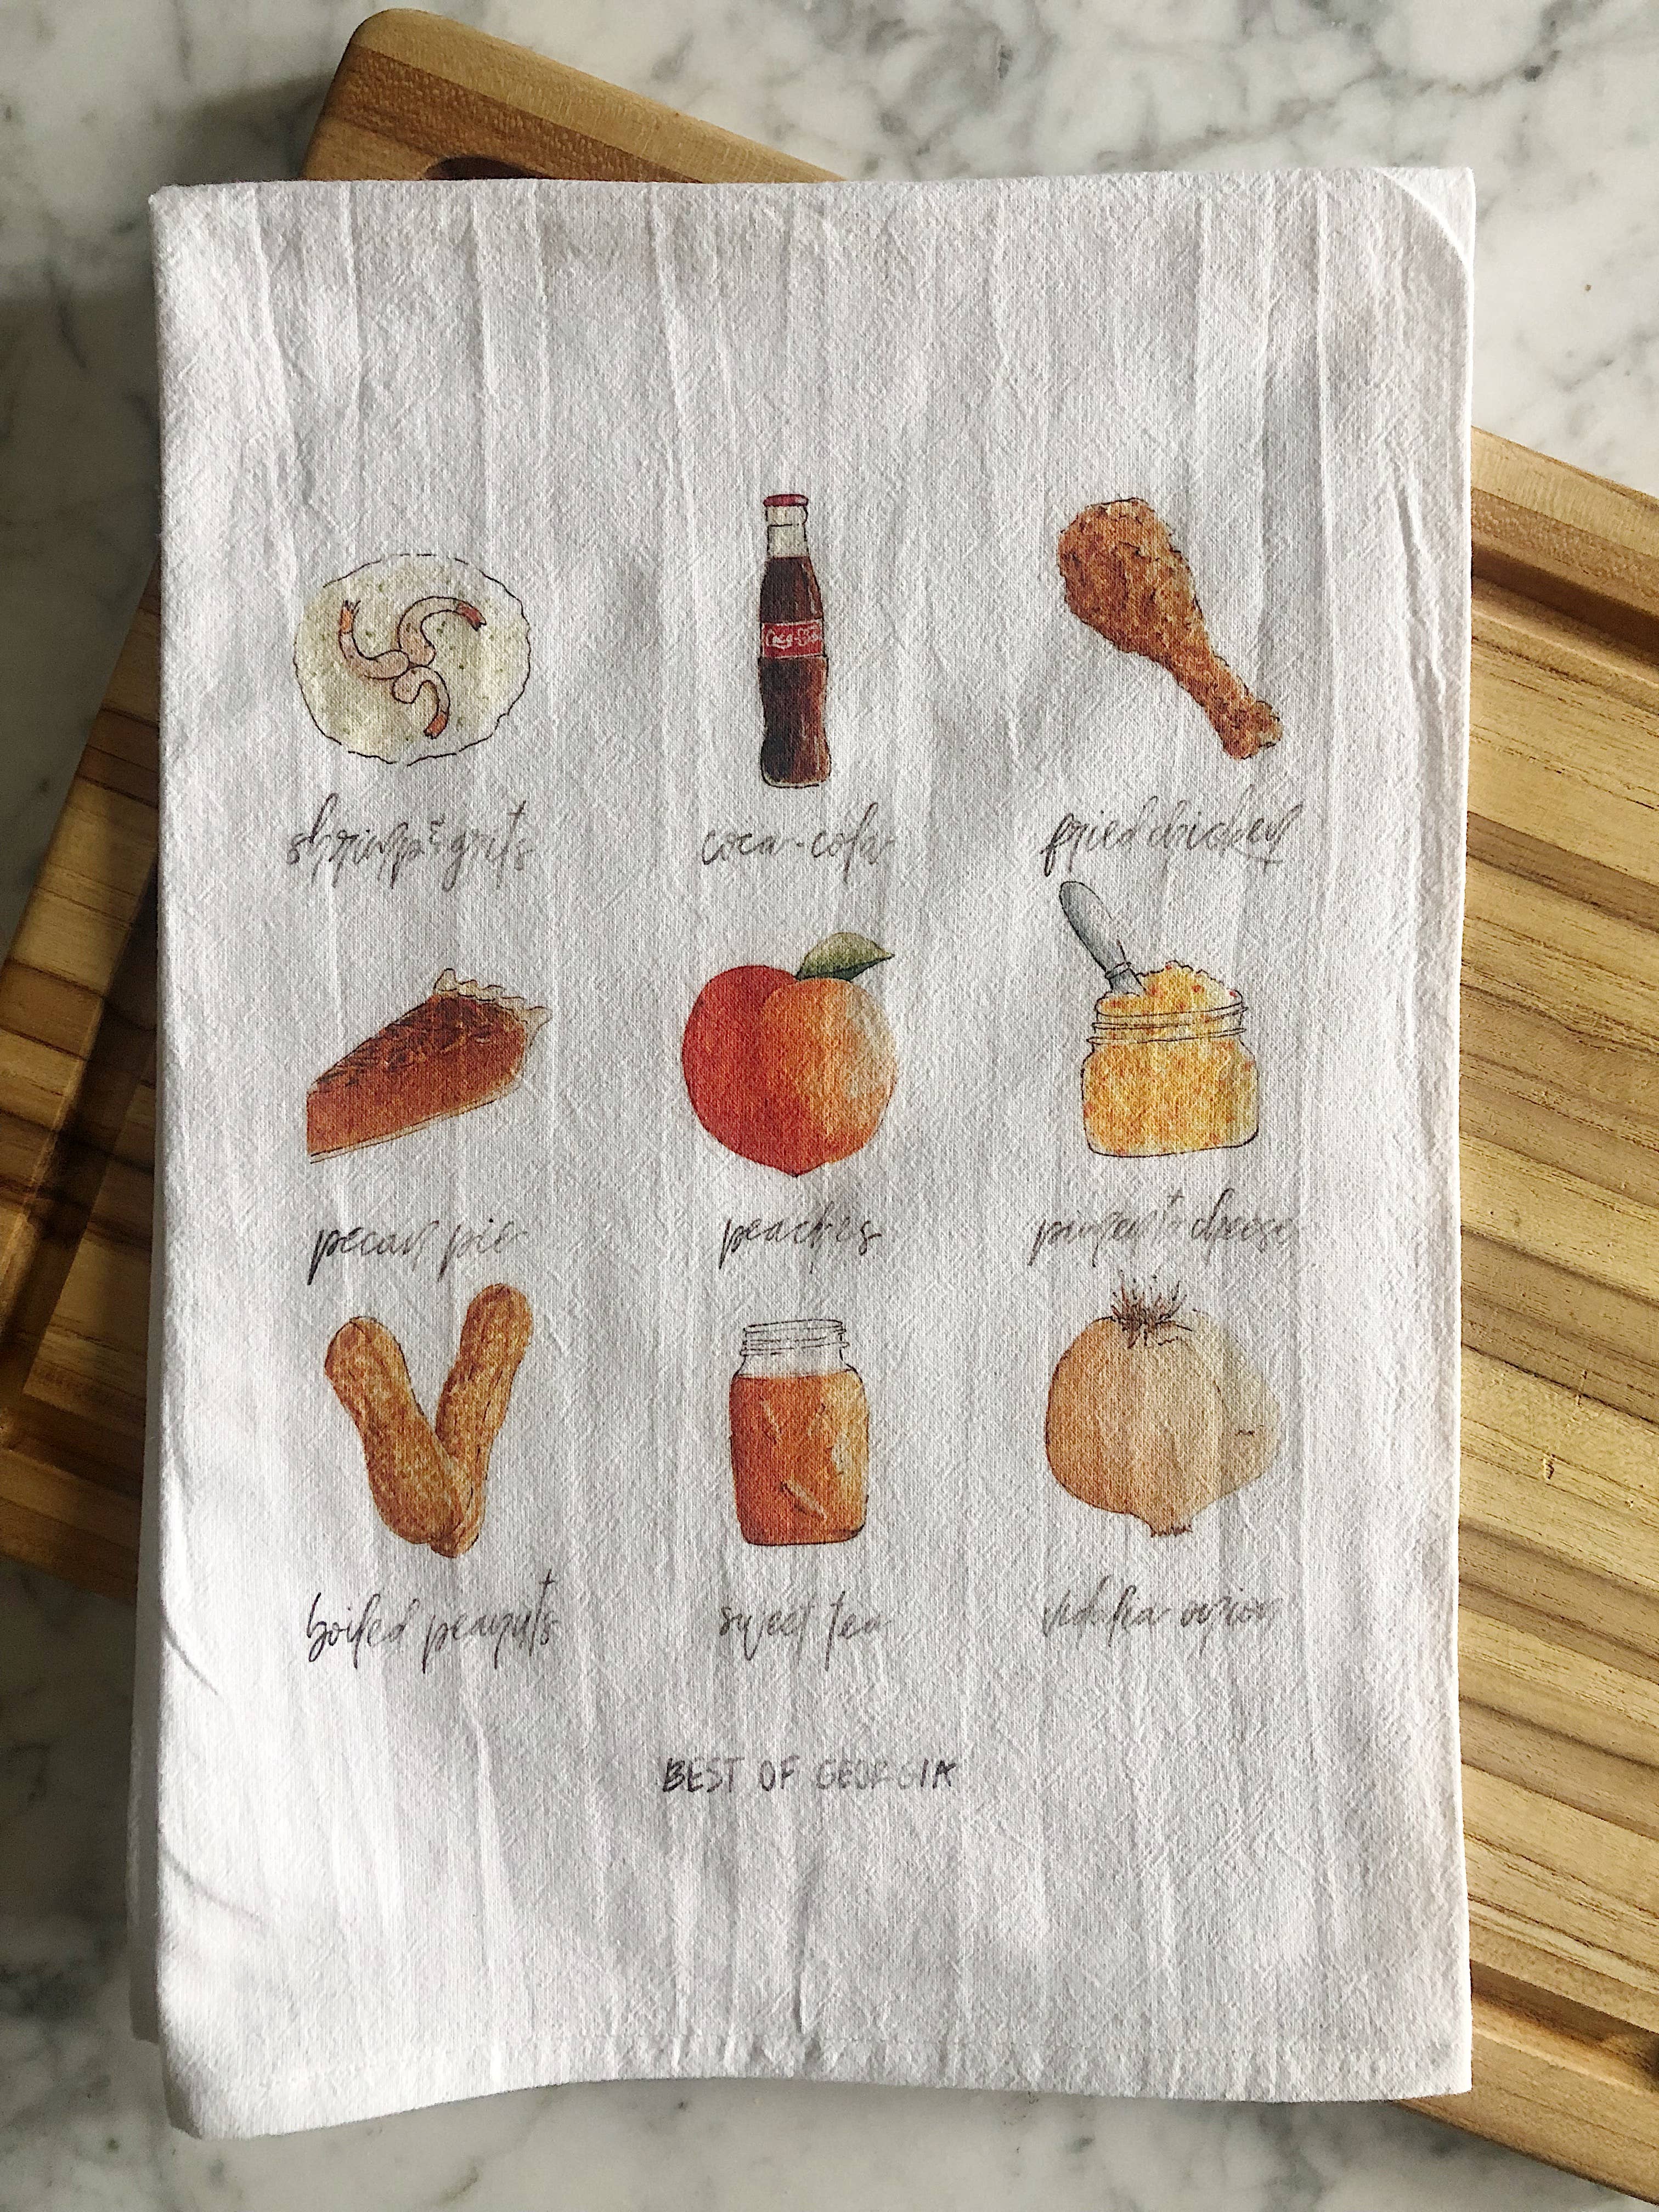 Coca-Cola
shrimp & grits
coca-cola
fried chicken
pecan pie
peaches
pimento cheese
boiled peanuts
sweet tea
vidalia onion
BEST OF GEORGIA